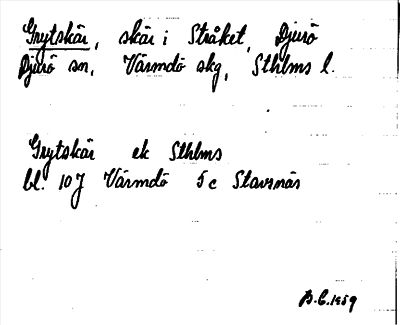 Grytskär, skär i Stråket, Djurö
Djurö sn, Värmdö skg, Sthlms l.
Grytskär ek Sthlms
bl. 10 J Värmdö 5c Stavsnäs
B.C. 1959